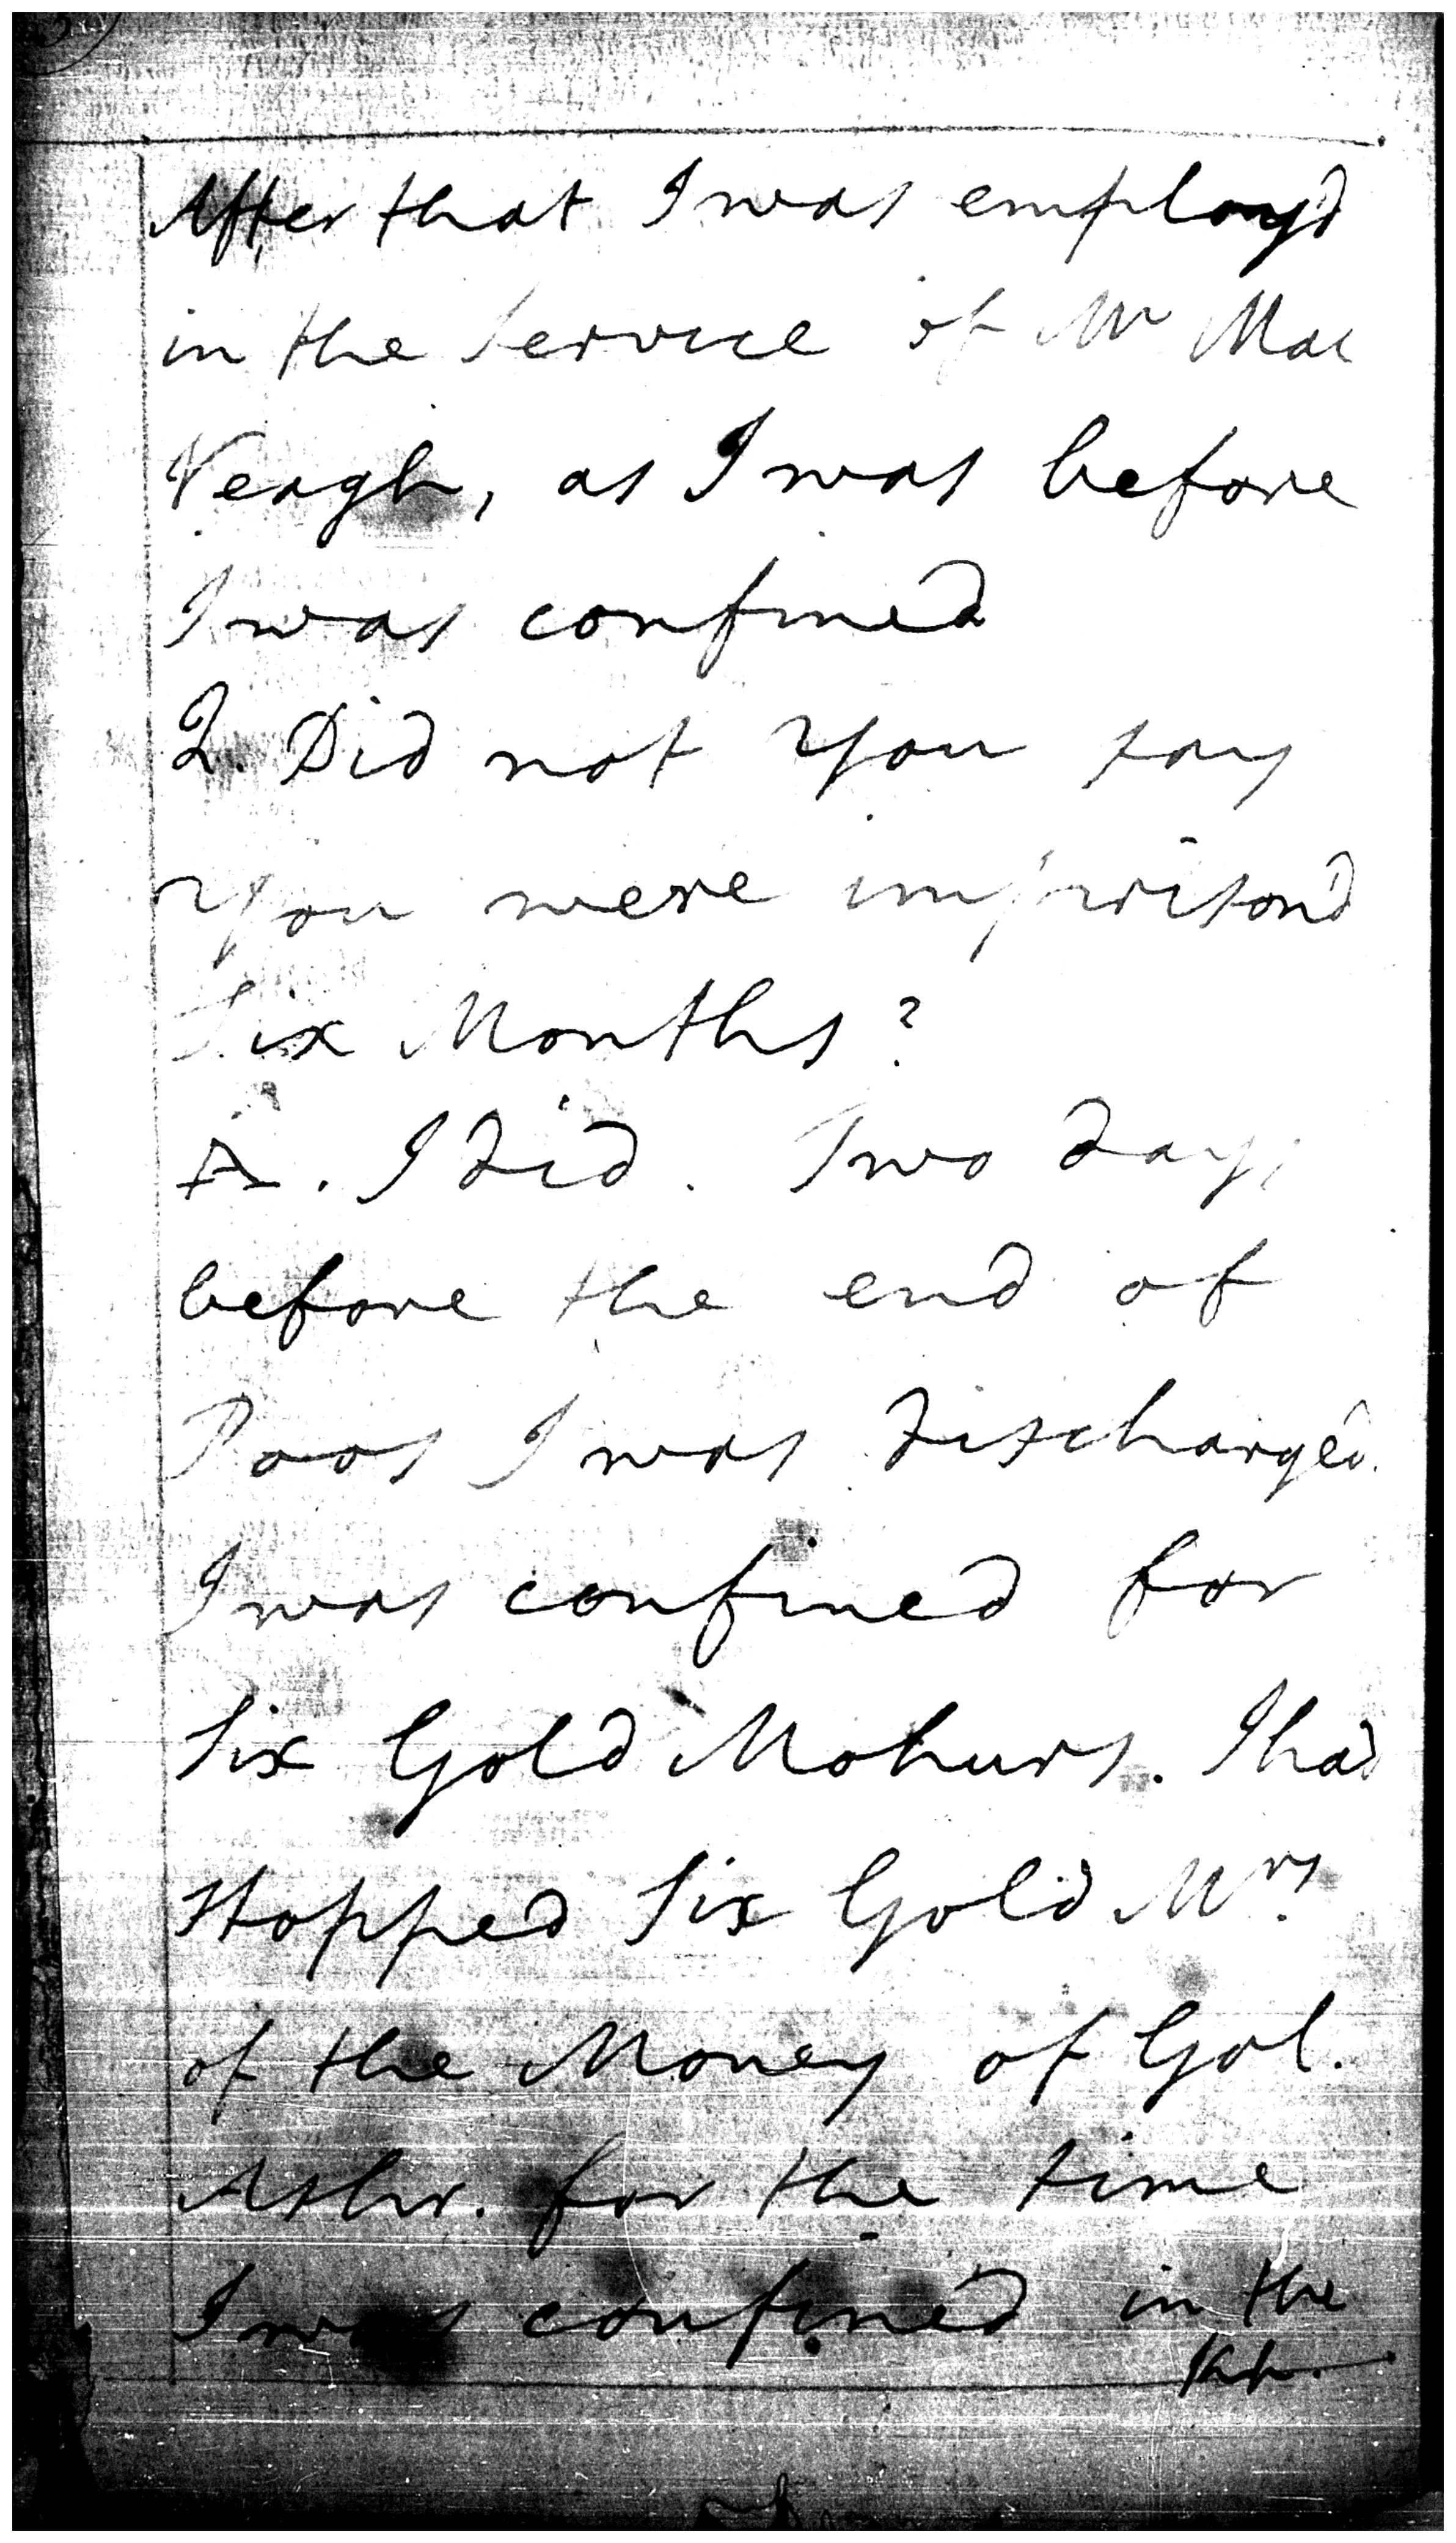 After that I was employ'd
in the Service of Mr Mac
Veagh, as I was before
I was confined
Q. Did not You say
You were imprison'd
Six Months?
A. I did. Two days
before the end of
Poos I was discharged.
I was confined for
Six Gold Mohurs. I had
stopped Six Gold Mrs.
of the Money of Gol.
Ashr. for the time
I was confined in the